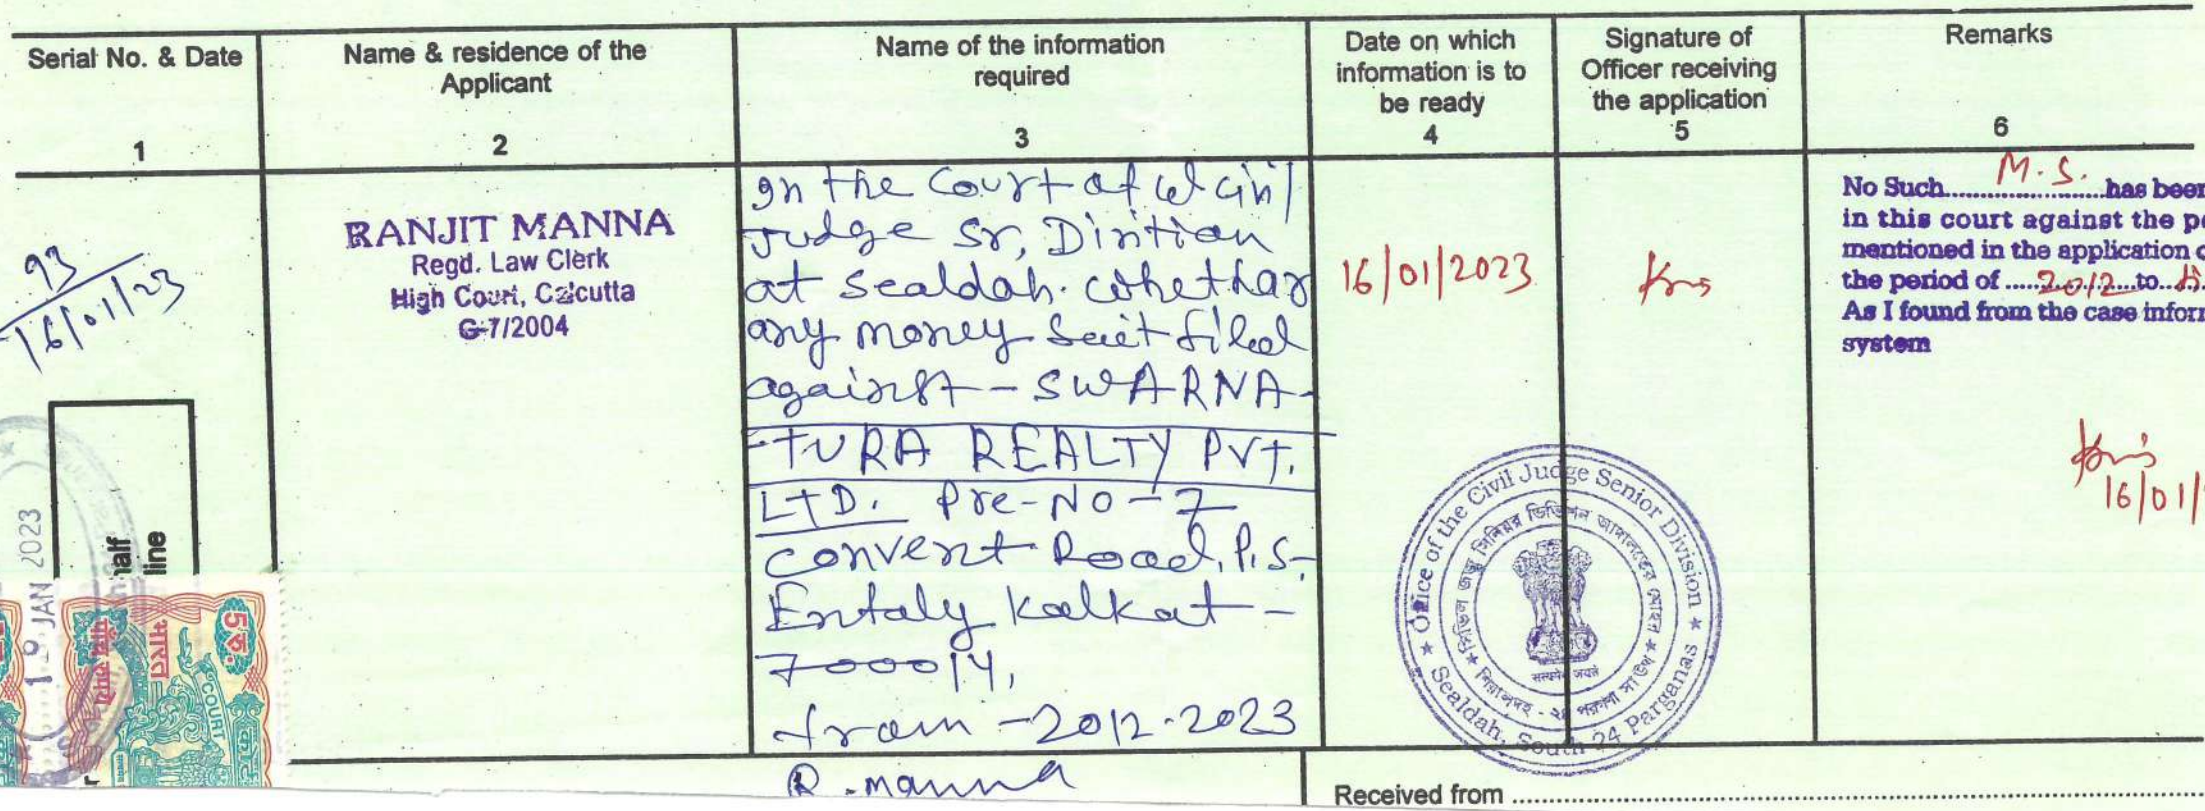 Serial No. & Date
Name & residence of the
Applicant
Name of the information
required
Date on which
information is to
be ready
Signature of
Officer receiving
the application
Remarks
1
2
3
4
5
6
93
16/01/23
RANJIT MANNA
Regd. Law Clerk
High Court, Calcutta
G-7/2004
In the Court of Ld Civil
Judge Sr, Divition
at Sealdah. Whethar
any money Suit filed
against - SWARNA-
-TURA REALTY PVT.
LTD. Pre-No-7
Convent Road, P.S-
Entaly Kolkat-
700014,
from -2012-2023
16/01/2023
No Such.......M.S.......has been
in this court against the pe
mentioned in the application o
the period of .....2012...to...
As I found from the case inform
system
16/01/
Office of the Civil Judge Senior Division
Sealdah, South 24 Parganas
half
line
19 JAN 2023
भारत
INDIA
COURT
5 रु.
R. Manna
Received from ....................